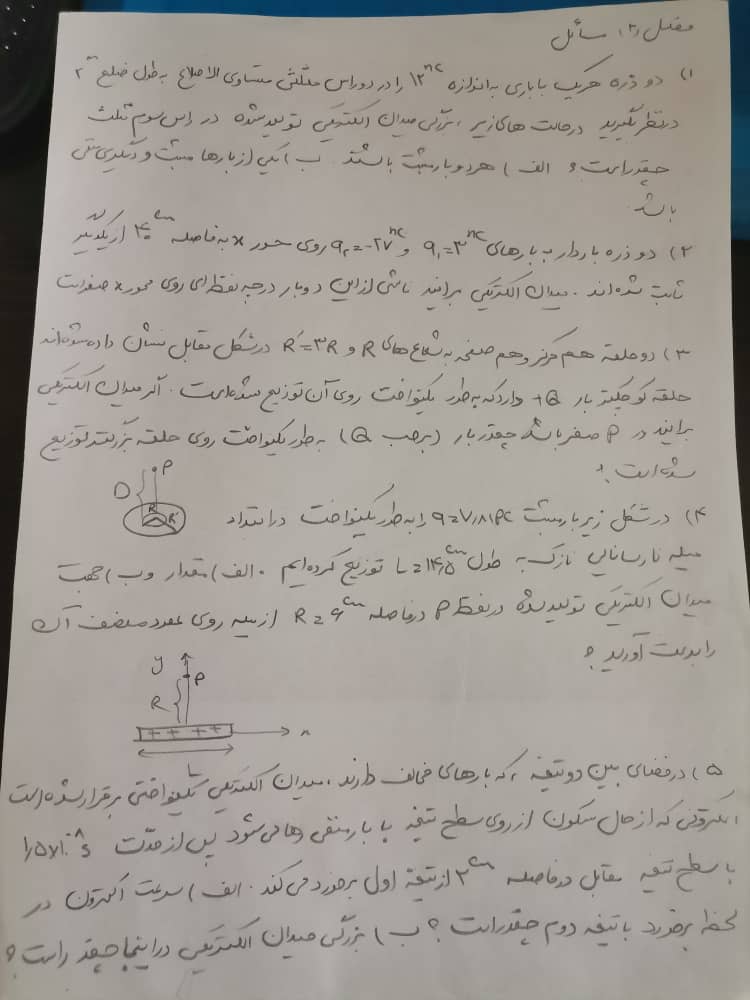 فصل (۲) مسائل
۱) دو ذره هریک با باری به اندازه ۱۲nc را در دو راس مثلثی متساوی الاضلاع به طول ضلع ۲m
در نظر بگیرید در حالت های زیر ، بزرگی میدان الکتریکی تولید شده در راس سوم مثلث
چقدر است ؟ الف ) هر دو بار مثبت باشند ب ) یکی از بارها مثبت و دیگری منفی
باشد.
۲) دو ذره باردار با بارهای q₁=۳nc و q₂=-۲۷nc روی محور x به فاصله ۴۰cm از یکدیگر
ثابت شده اند . میدان الکتریکی برایند ناشی از این دو بار در چه نقطه ای روی محور x صفر است
۳) دو حلقه هم مرکز و هم صفحه به شعاع های R و R'=۳R در شکل مقابل نشان داده شده اند
حلقه کوچکتر بار +Q دارد که به طور یکنواخت روی آن توزیع شده است . اگر میدان الکتریکی
برایند در P صفر باشد چقدر بار (برحسب Q) به طور یکنواخت روی حلقه بزرگتر توزیع
شده است ؟
D P
R R'
۴) در شکل زیر بار مثبت q=۷٫۸۱pc را به طور یکنواخت در امتداد
میله نارسانایی نازک به طول L=۱۴٫۵cm توزیع کرده ایم . الف ) مقدار و ب ) جهت
میدان الکتریکی تولید شده در نقطه P در فاصله R=۶cm از میله روی عمود منصف آن
را بدست آورید ؟
y
P
R
+ + + +
x
L
۵) در فضای بین دو تیغه ، که بارهای مخالف دارند ، میدان الکتریکی یکنواختی برقرار شده است
الکترونی که از حال سکون از روی سطح تیغه با بار منفی رها می شود پس از مدت ۱٫۵×۱۰⁻⁸ s
با سطح تیغه مقابل در فاصله ۲cm از تیغه اول برخورد می کند . الف ) سرعت الکترون در
لحظه برخورد با تیغه دوم چقدر است ؟ ب ) بزرگی میدان الکتریکی در اینجا چقدر است ؟